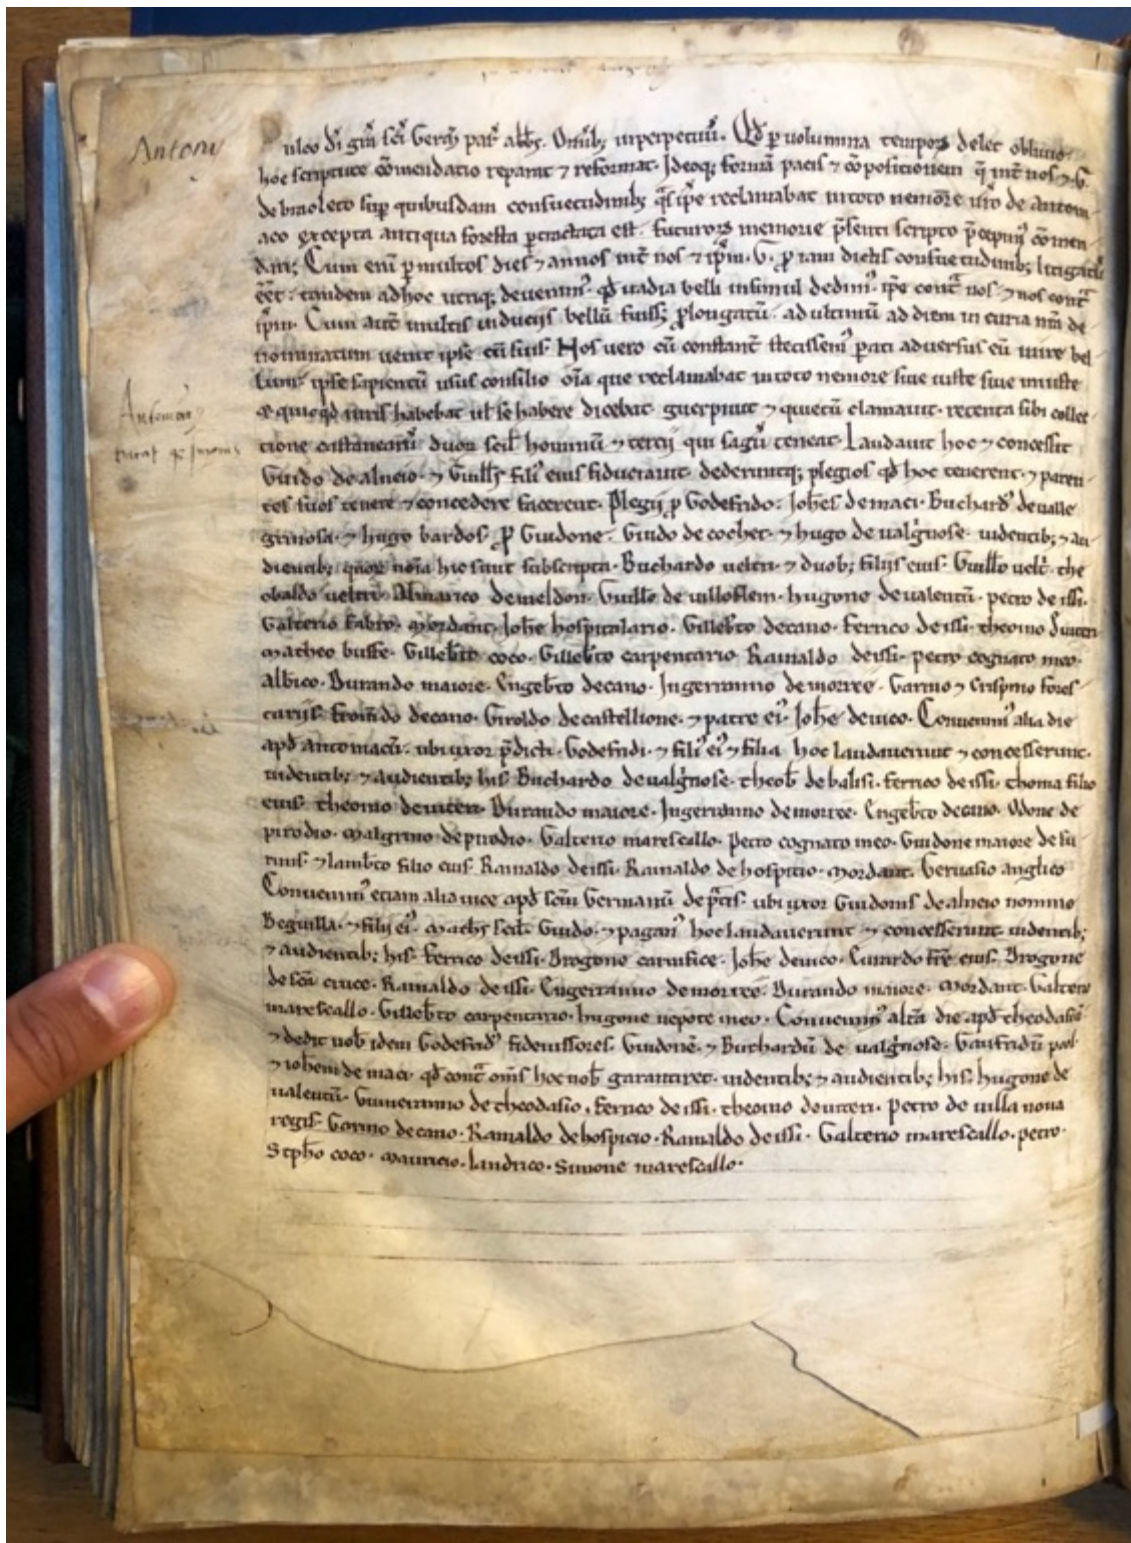 Antony
ulco dī grā scī Germ̄ par̄ abb̄s. Omīb; inperpetuū. Qđ p uolumina tempoꝝ delet obliuio
hoc scripture cōmendatio reparat ⁊ reformat. Ideoq; formā pacis ⁊ cōpositionem q̄ int̄ nos ⁊ .G.
sup quibusdam consuetudinib; q̄s ip̄e reclamabat intoto nemore nr̄o de antoni
aco excepta antiqua foresta ptractata est. futuroꝝ memorie p̄senti scripto cōmen
dari; Cum eni p multos dies ⁊ annos int̄ nos ⁊ ip̄m .G. ꝓ iam dictis consuetudinib; litigatū
eēt. tandem adhoc utriq; deuenim᾽. qđ uadia belli insimul dedim᾽. ip̄e cont̄ nos ⁊ nos cont̄
ip̄m. Cum aut̄ multis induciis bellū fuiss; ꝓlongatū. ad ultimū ad diem in curia nr̄a de
nominatum uenit ipse cū suis. Nos uero cū constant̄ stetissem᾽ parati aduersus eū inire bel
lum. ipse sapientū usus consilio oīa que reclamabat intoto nemore siue iuste siue iniuste
⁊ quicqđ iuris habebat uł se habere dicebat guerpiuit ⁊ quietū clamauit. retenta sibi collec
tione castanearū duoꝝ scił hominū ⁊ tercii qui sagū teneat. Laudauit hoc ⁊ concessit
Guido de alneio. ⁊ Guillł̄s fili᾽ eius fiduciauit. dederuntq; plegios qđ hoc tenerent. ⁊ paren
tes suos tenere ⁊ concedere facerent. Plegii ꝓ Godefrido. Joh̄es demaci. Buchard᾽ deualle
grinosa. ⁊ hugo bardos. ꝓ Guidone. Guido de cochet. ⁊ hugo de ualḡnose. uidentib; ⁊ au
dientib; quoꝝ noīa hic sunt subscripta. Buchardo ueltri. ⁊ duob; filiis eius. Guillo uelt̄. the
obaldo ueltre. Almarico demeldon. Guillo de uilloflem. hugone deualentū. petro de issi.
Galterio fabro. mordant; Joh̄e hospitalario. Gilleb̄to decano. ferrico deissi. theoino
matheo buffe. Gilleb̄to coco. Gilleb̄to carpentario. Rainaldo deissi. petro cognato meo.
alb̄ico. Durando maiore. Engeb̄to decano. Ingerranno demorree. Garino ⁊ Crispino fores
tariis. decano. Giroldo decastellione. ⁊ patre ei᾽. Joh̄e deuico. Conuenim᾽ alia die
apđ antoniacū. ubi uxor p̄dicti Godefridi. ⁊ fili᾽ ei᾽ ⁊ filia hoc laudauerunt ⁊ concesserunt.
uidentib; ⁊ audientib; his. Buchardo deualḡnose. theob̄ de balisi. ferrico deissi. thoma filio
eius. theoino deuiteri. Durando maiore. Ingerranno demorree. Engeb̄to decano. Odone de
pirodio. malgrino depirodio. Galterio marescallo. Petro cognato meo. Guidone maiore de
⁊ lamb̄to filio eius. Rainaldo deissi. Rainaldo dehospicio. mordant. Geruasio anglico
Conuenim᾽ etiam alia uice apđ scm̄ Germanū dep̄tis. ubi uxor Guidonis de alneio nomine
Beguilla. ⁊ filii ei᾽. math̄s scił. Guido. ⁊ pagan᾽ hoc laudauerunt ⁊ concesserunt. uidentib;
⁊ audientib; his. ferrico deissi. Drogone carnifice. Joh̄e deuico. Euurardo fr̄e eius. Drogone
de scā cruce. Rainaldo deissi. Engerranno demorree. Durando maiore. mordant. Galterio
marescallo. Gilleb̄to carpentario. hugone nepote meo. Conuenim᾽ alt̄a die apđ theodasiū
⁊ dedit nob̄ idem Godefrid᾽ fideiussores. Guidonē. ⁊ Buchardū de ualḡnose. Gaufridū
⁊ ioh̄em de maci. qđ cont̄ om̄s hoc nob̄ garantiret. uidentib; ⁊ audientib; his. hugone de
ualentū. Guinerranno de theodasio. ferrico de issi. theoino deuiteri. Petro de uilla noua
regis. Gorino decano. Rainaldo dehospicio. Rainaldo deissi. Galterio marescallo. petro.
Stph̄o coco. Mauricio. Landrico. Simone marescallo.